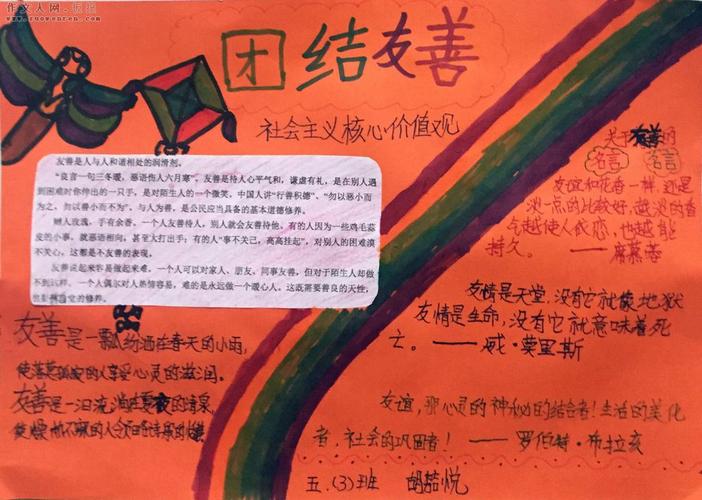 作文人网·板报
www.zuowenren.com
团结友善
社会主义核心价值观
友善是人与人和谐相处的润滑剂。
“良言一句三冬暖，恶语伤人六月寒”。友善是待人心平气和，谦虚有礼，是在别人遇
到困难时你伸出的一只手，是对陌生人的一个微笑。中国人讲“行善积德”、“勿以恶小而
为之，勿以善小而不为”。与人为善，是公民应当具备的基本道德修养。
赠人玫瑰，手有余香。一个人友善待人，别人就会友善待他。有的人因为一些鸡毛蒜
皮的小事，就恶语相向，甚至大打出手；有的人“事不关己，高高挂起”，对别人的困难漠
不关心，这都是不友善的表现。
友善说起来容易做起来难。一个人可以对家人、朋友、同事友善，但对于陌生人却做
不到这样。一个人偶尔对人热情容易，难的是永远做一个暖心人。这既需要善良的天性，
的修养。
友善是一飘洒在春天的小雨，
使落寞孤寂的人享受心灵的滋润。
友善是一汩流淌在夏夜的清泉，
使燥热不寐的人
关于友善的
名言 名言
友谊和花香一样，还是
淡一点的比较好，越淡的香
气越使人依恋，也越能
持久。 ——席慕蓉
友情是天堂，没有它就像地狱
友情是生命，没有它就意味着死
亡。——威·莫里斯
友谊，那心灵的神秘的结合者！生活的美化
者，社会的巩固者！——罗伯特·布拉亥
五.(3)班 胡喆悦